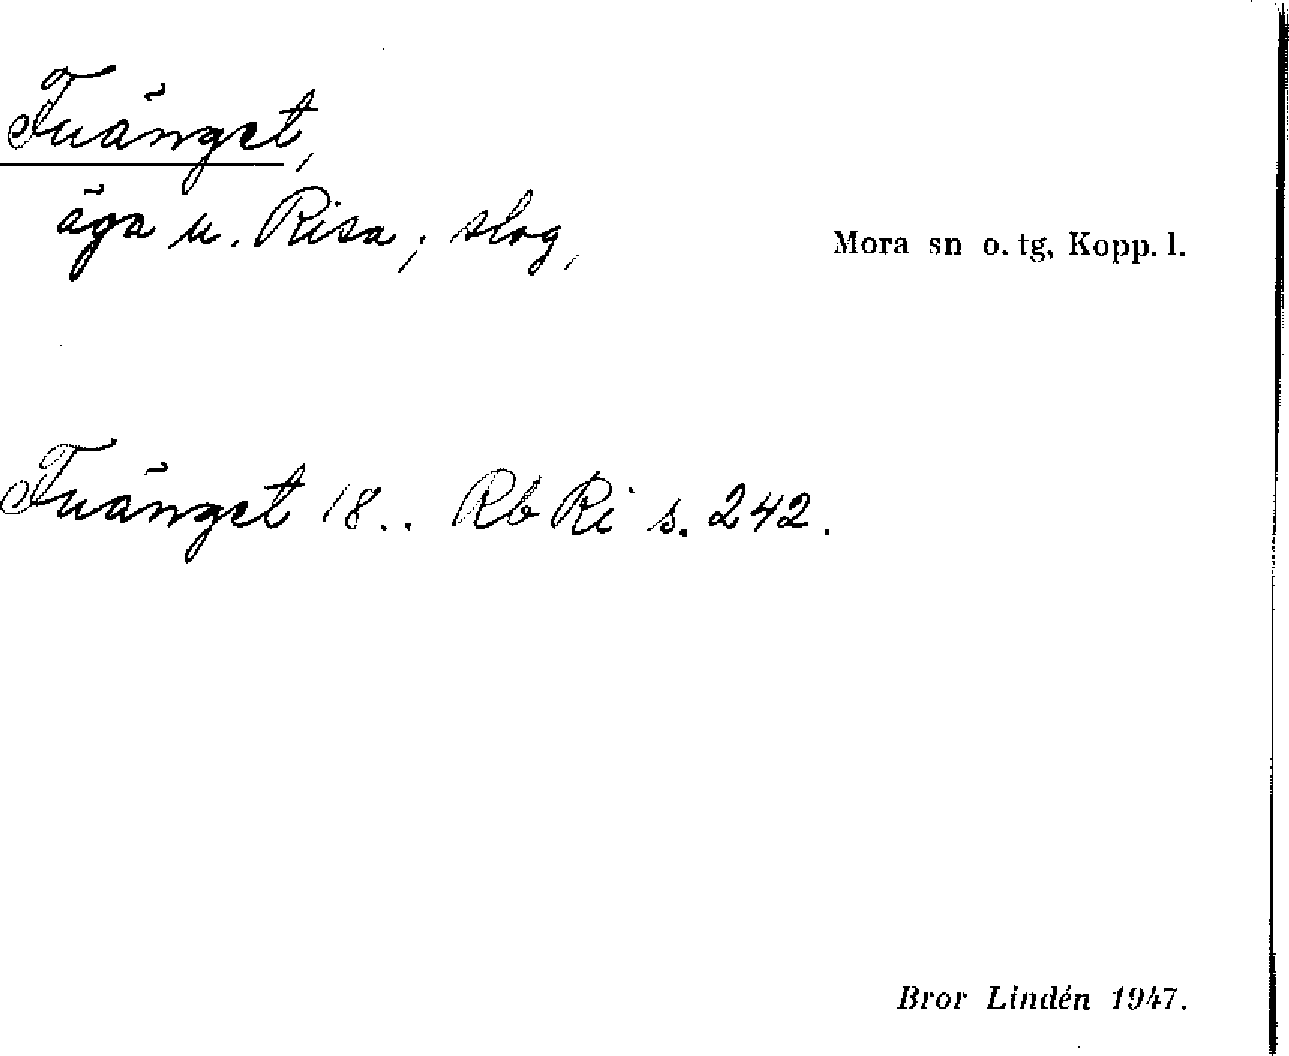 Tuänget,
äga u. Risa; slog,
Mora sn o. tg, Kopp. l.
Tuänget 18.. Rb Ri s. 242.
Bror Lindén 1947.